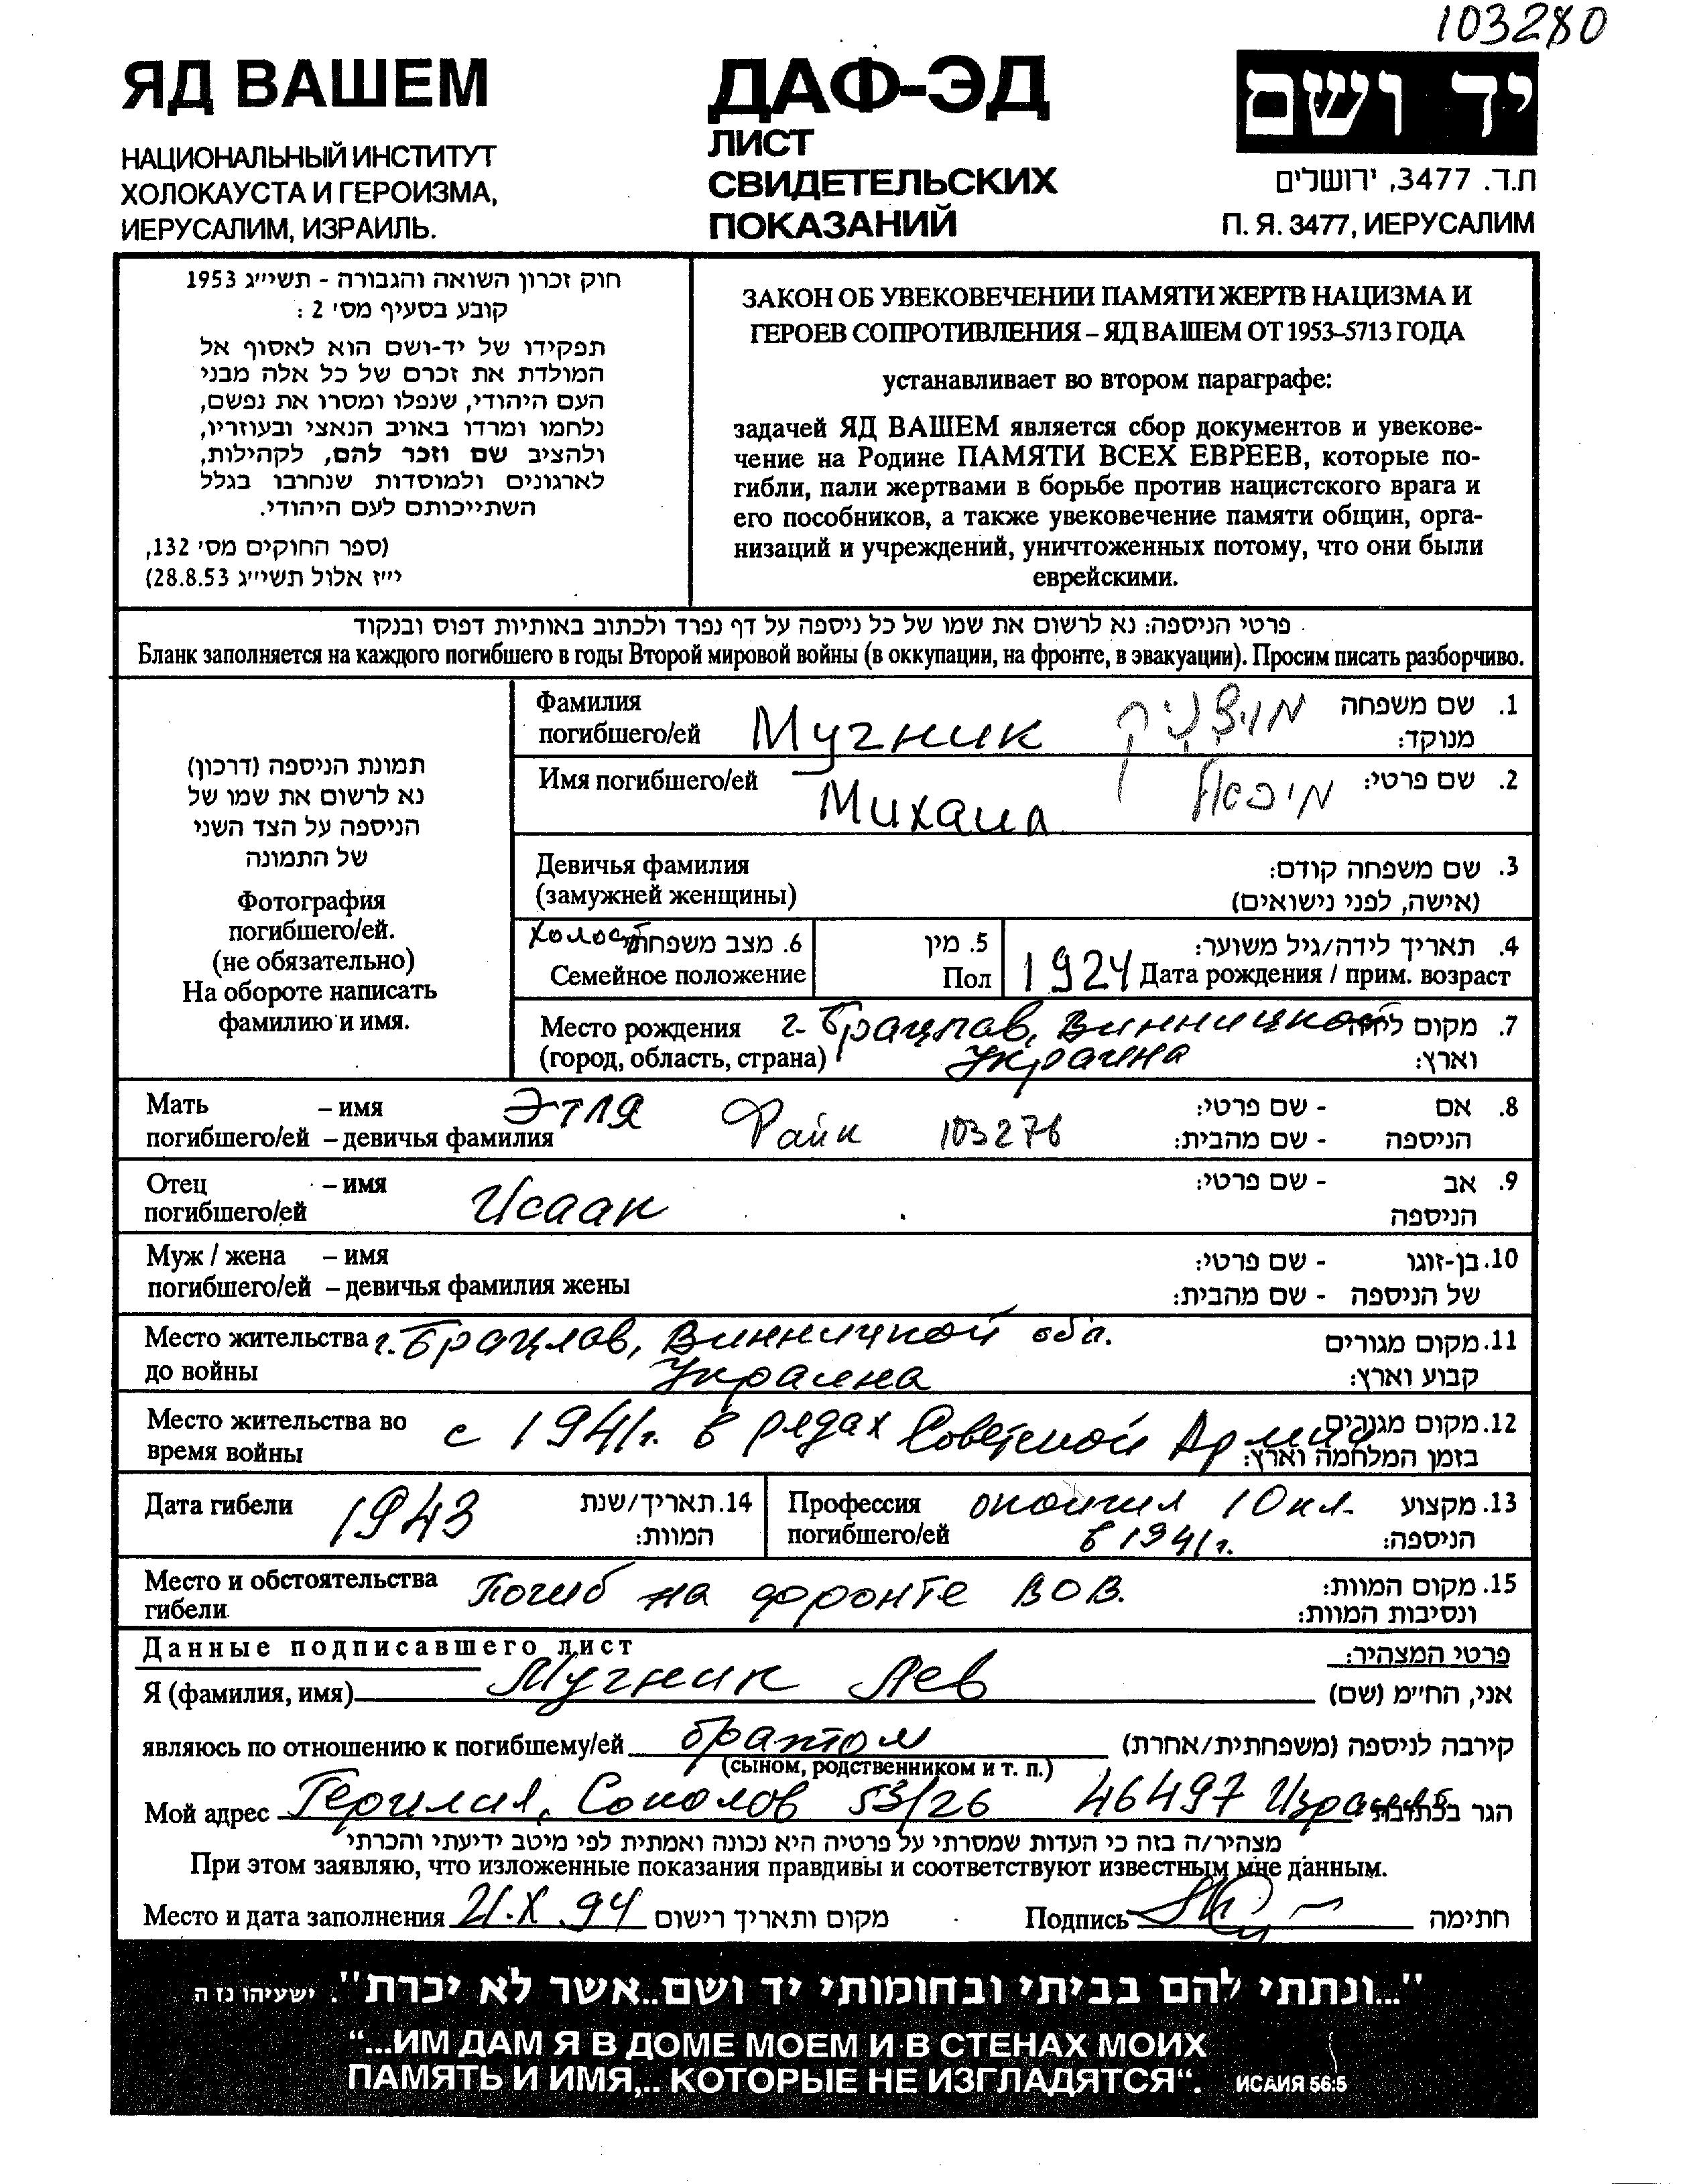 103280
ЯД ВАШЕМ
НАЦИОНАЛЬНЫЙ ИНСТИТУТ
ХОЛОКАУСТА И ГЕРОИЗМА,
ИЕРУСАЛИМ, ИЗРАИЛЬ.
ДАФ-ЭД
ЛИСТ
СВИДЕТЕЛЬСКИХ
ПОКАЗАНИЙ
יד ושם
ת.ד. 3477, ירושלים
П. Я. 3477, ИЕРУСАЛИМ
חוק זכרון השואה והגבורה - תשי״ג 1953
קובע בסעיף מס' 2 :
תפקידו של יד-ושם הוא לאסוף אל
המולדת את זכרם של כל אלה מבני
העם היהודי, שנפלו ומסרו את נפשם,
נלחמו ומרדו באויב הנאצי ובעוזריו,
ולהציב שם וזכר להם, לקהילות,
לארגונים ולמוסדות שנחרבו בגלל
השתייכותם לעם היהודי.
(ספר החוקים מס' 132,
י״ז אלול תשי״ג 28.8.53)
ЗАКОН ОБ УВЕКОВЕЧЕНИИ ПАМЯТИ ЖЕРТВ НАЦИЗМА И
ГЕРОЕВ СОПРОТИВЛЕНИЯ – ЯД ВАШЕМ ОТ 1953–5713 ГОДА
устанавливает во втором параграфе:
задачей ЯД ВАШЕМ является сбор документов и увекове-
чение на Родине ПАМЯТИ ВСЕХ ЕВРЕЕВ, которые по-
гибли, пали жертвами в борьбе против нацистского врага и
его пособников, а также увековечение памяти общин, орга-
низаций и учреждений, уничтоженных потому, что они были
еврейскими.
פרטי הניספה: נא לרשום את שמו של כל ניספה על דף נפרד ולכתוב באותיות דפוס ובנקוד
Бланк заполняется на каждого погибшего в годы Второй мировой войны (в оккупации, на фронте, в эвакуации). Просим писать разборчиво.
תמונת הניספה (דרכון)
נא לרשום את שמו של
הניספה על הצד השני
של התמונה
Фотография
погибшего/ей.
(не обязательно)
На обороте написать
фамилию и имя.
Фамилия מוצ'ניק 1. שם משפחה
погибшего/ей Мучник מנוקד:
Имя погибшего/ей Михаил מיכאל 2. שם פרטי:
Девичья фамилия 3. שם משפחה קודם:
(замужней женщины) (אישה, לפני נישואים)
холост 6. מצב משפחתי 5. מין 4. תאריך לידה/גיל משוער:
Семейное положение Пол 1924 Дата рождения / прим. возраст
Место рождения г. Брацлав, Винницкой 7. מקום לידה
(город, область, страна) Украина וארץ:
Мать – имя Этля - שם פרטי: 8. אם
погибшего/ей – девичья фамилия Файн 103276 - שם מהבית: הניספה
Отец – имя Исаак - שם פרטי: 9. אב
погибшего/ей הניספה
Муж / жена – имя - שם פרטי: 10. בן-זוגו
погибшего/ей – девичья фамилия жены - שם מהבית: של הניספה
Место жительства г. Брацлав, Винницкой обл. 11. מקום מגורים
до войны Украина קבוע וארץ:
Место жительства во с 1941г. в рядах Советской Армии 12. מקום מגורים
время войны בזמן המלחמה וארץ:
Дата гибели 1943 14. תאריך/שנת המוות:
Профессия окончил 10 кл. 13. מקצוע
погибшего/ей в 1941г. הניספה:
Место и обстоятельства Погиб на фронте ВОВ. 15. מקום המוות:
гибели ונסיבות המוות:
Данные подписавшего лист פרטי המצהיר:
Я (фамилия, имя) Мучник Лев אני, החי״מ (שם)
являюсь по отношению к погибшему/ей братом קירבה לניספה (משפחתית/אחרת)
(сыном, родственником и т. п.)
Мой адрес Герцлия, Соколов 53/26 46497 Израиль הגר בכתובת
מצהיר/ה בזה כי העדות שמסרתי על פרטיה היא נכונה ואמתית לפי מיטב ידיעתי והכרתי
При этом заявляю, что изложенные показания правдивы и соответствуют известным мне данным.
Место и дата заполнения 21.X.94 מקום ותאריך רישום Подпись חתימה
"...ונתתי להם בביתי ובחומותי יד ושם..אשר לא יכרת". ישעיהו נז ה
“...ИМ ДАМ Я В ДОМЕ МОЕМ И В СТЕНАХ МОИХ
ПАМЯТЬ И ИМЯ,.. КОТОРЫЕ НЕ ИЗГЛАДЯТСЯ“. ИСАИЯ 56:5